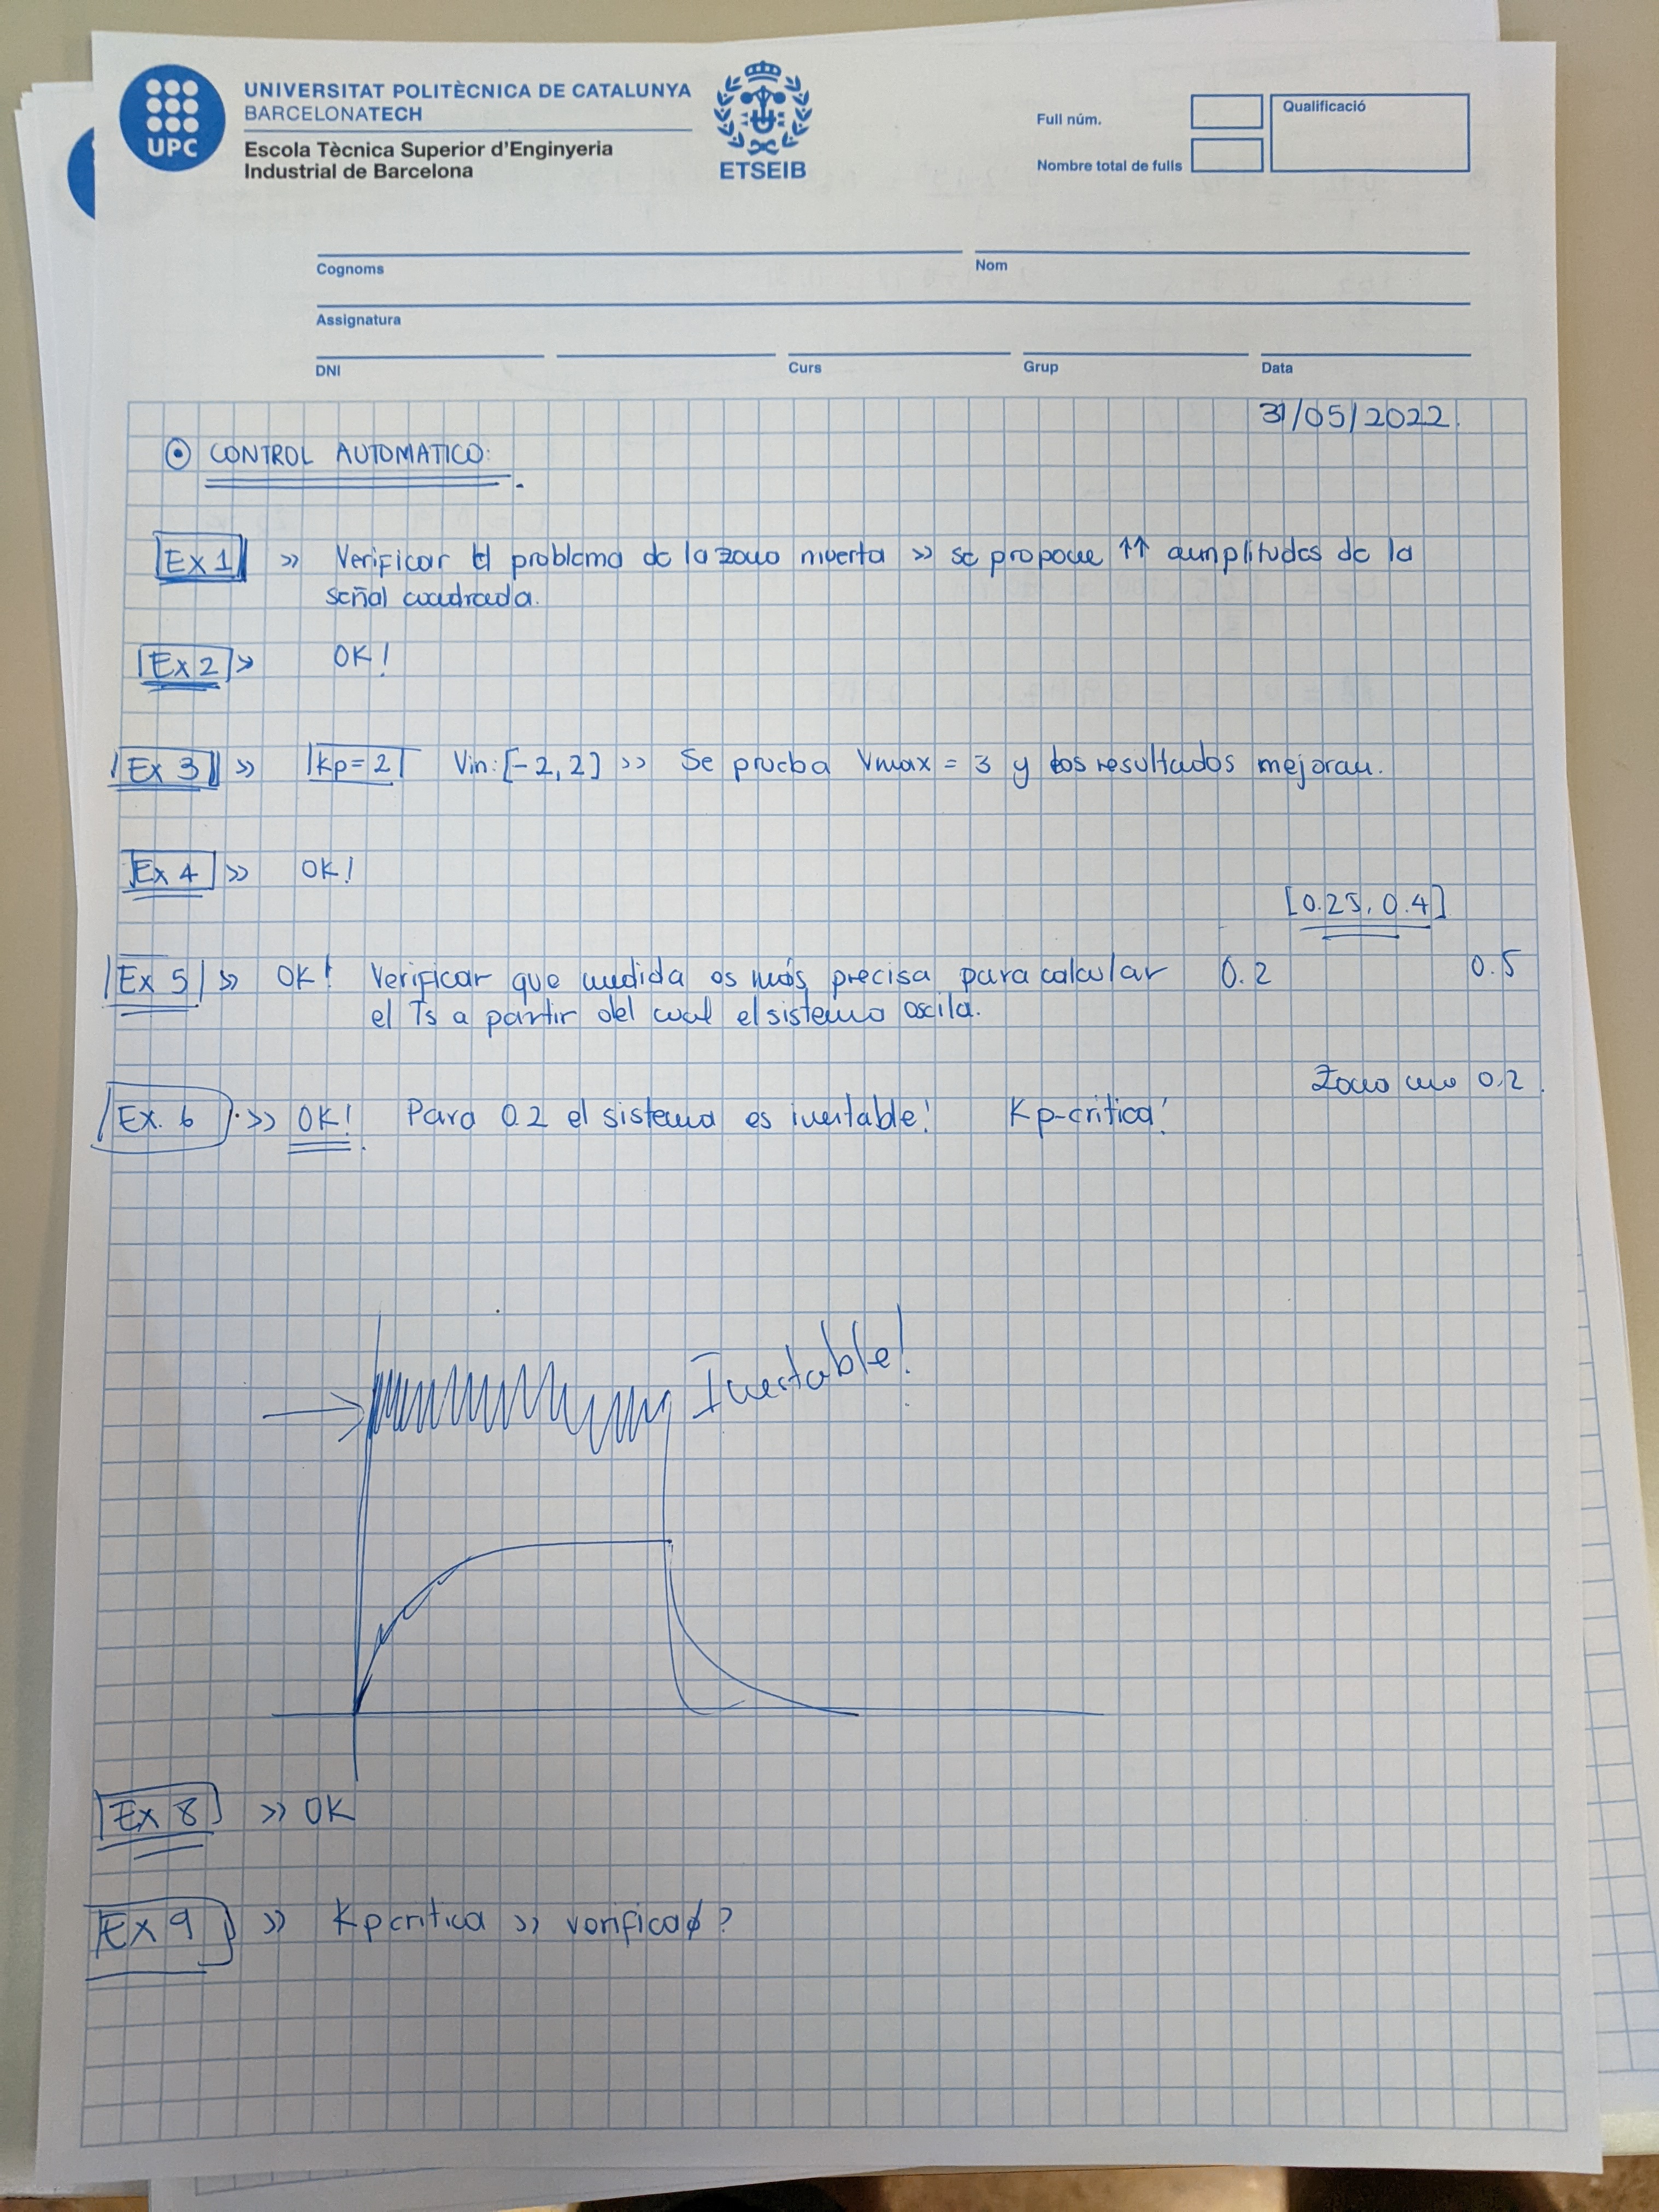 UNIVERSITAT POLITÈCNICA DE CATALUNYA
BARCELONATECH
Escola Tècnica Superior d'Enginyeria
Industrial de Barcelona
UPC
ETSEIB
Full núm.
Nombre total de fulls
Qualificació
Cognoms
Nom
Assignatura
DNI
Curs
Grup
Data
31/05/2022
CONTROL AUTOMATICO:
Ex 1 >> Verificar el problema de la zona muerta >> se propone ↑↑ amplitudes de la
señal cuadrada.
Ex 2 > OK!
Ex 3 >> Kp=2 Vin: [-2, 2] >> Se prueba Vmax = 3 y los resultados mejoran.
Ex 4 >> OK!
[0.25, 0.4]
Ex 5 >> OK! Verificar que medida es más precisa para calcular 0.2 0.5
el Ts a partir del cual el sistema oscila.
0.2
Ex. 6 >> OK! Para 0.2 el sistema es inestable! Kp-critica!
Inestable!
Ex 8 >> OK
Ex 9 >> Kp critica >> verifica ?